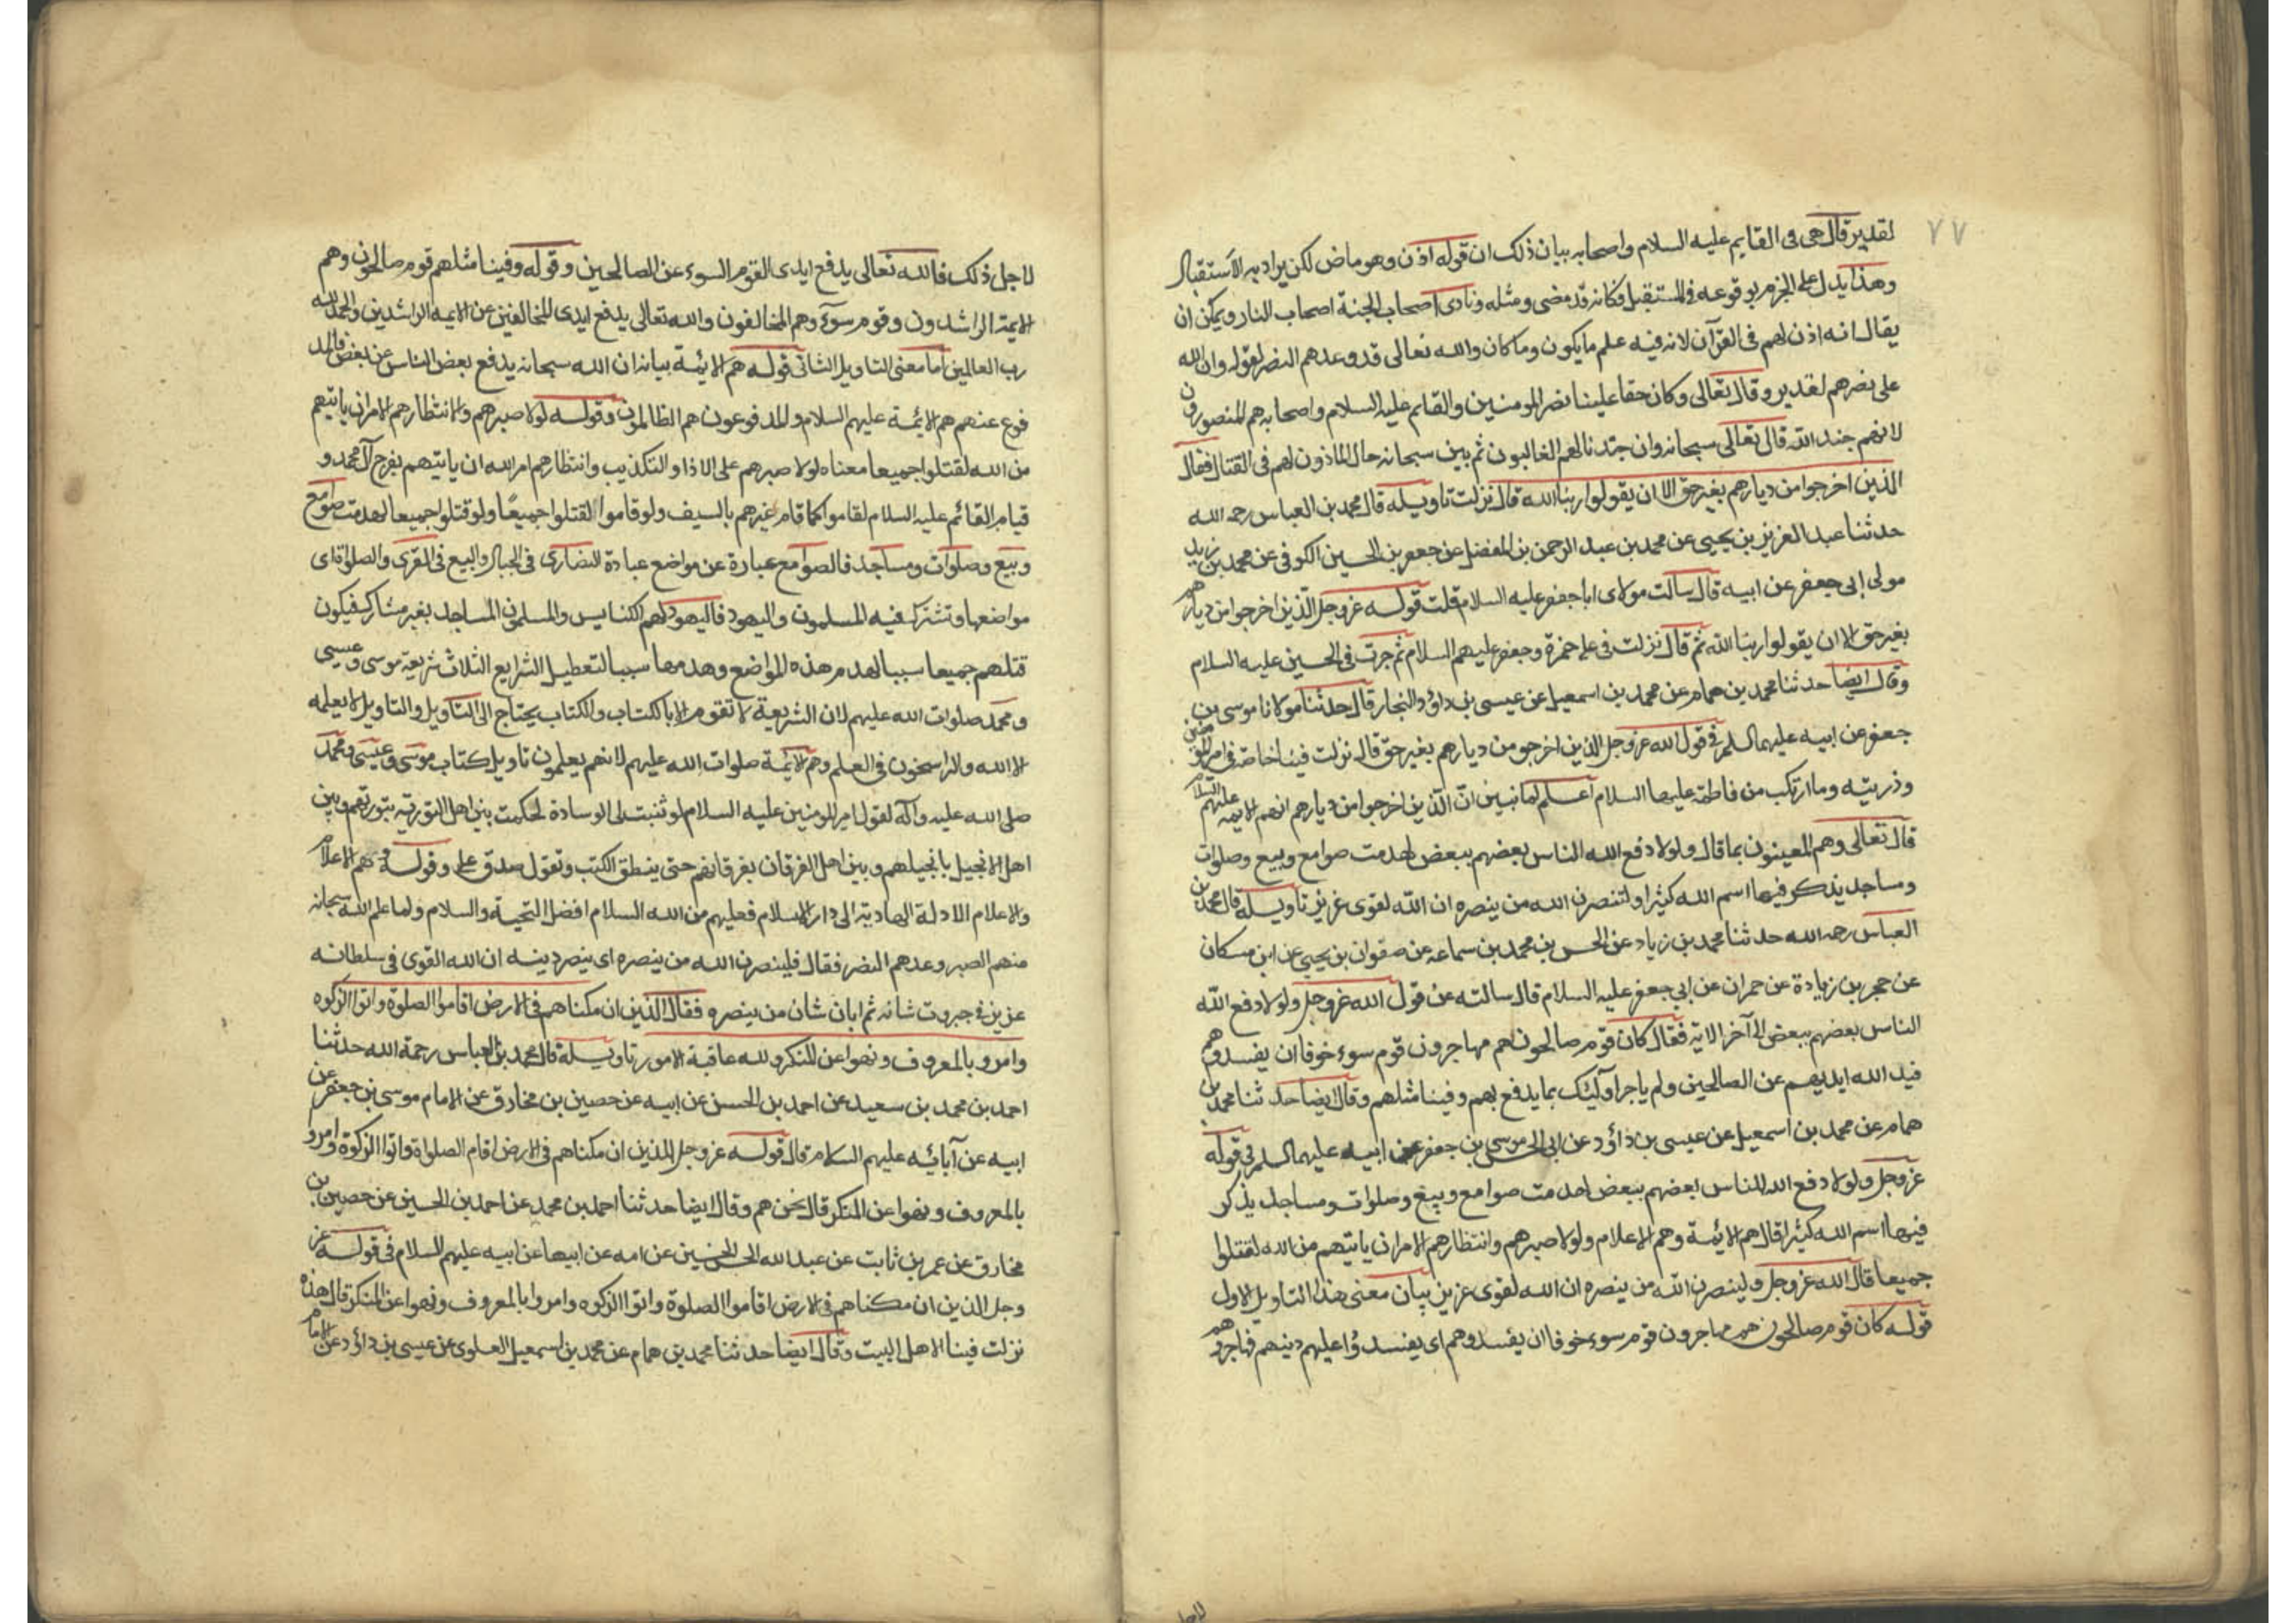 ٧٧
لقدير قال هى فى القايم عليه السلام واصحابه بيان ذلك ان قوله اذن وهو ماض لكن يراد به الاستقبال
وهذا يدل على الجزم بوقوعه فى المستقبل فكانه قد مضى ومثله ونادى اصحاب الجنة اصحاب النار ويمكن ان
يقال انه اذن لهم فى القرآن لانه فيه علم ما يكون وما كان والله تعالى قد وعدهم النصر لقوله وان الله
على نصرهم لقدير وقال تعالى وكان حقا علينا نصر المومنين والقايم عليه السلام واصحابه هم المنصورون
لانهم جند الله قال تعالى سبحانه وان جندنا لهم الغالبون ثم بين سبحانه حال الماذون لهم فى القتال فقال
الذين اخرجوا من ديارهم بغير حق الا ان يقولوا ربنا الله قال نزلت تاويله قال محمد بن العباس رحمه الله
حدثنا عبد العزيز بن يحيى عن محمد بن عبد الرحمن بن المفضل عن جعفر بن الحسين الكوفى عن محمد بن زيد
مولى ابى جعفر عن ابيه قال سالت مولاى ابا جعفر عليه السلام قلت قوله عز وجل الذين اخرجوا من ديارهم
بغير حق الا ان يقولوا ربنا الله ثم قال نزلت فى على حمزة وجعفر عليهم السلام ثم جرت فى الحسين عليه السلام
وقال ايضا حدثنا محمد بن همام عن محمد بن اسمعيل عن عيسى بن داؤد النجار قال حدثنا مولانا موسى بن
جعفر عن ابيه عليهما السلم فى قول الله عز وجل الذين اخرجو من ديارهم بغير حق قال نزلت فينا خاصة فى امير المؤمنين
وذريته وما ارتكب من فاطمة عليها السلام اعلم لما تبين ان الذين اخرجوا من ديارهم انهم الايمه عليهم السلام
قال تعالى وهم المعينون بما قال ولولا دفع الله الناس بعضهم ببعض لهدمت صوامع وبيع وصلوات
ومساجد يذكر فيها اسم الله كثيرا ولتنصرن الله من ينصره ان الله لقوى عزيز تاويله قال محمد بن
العباس رحمه الله حدثنا محمد بن زياد عن الحسن بن محمد بن سماعه عن صفوان بن يحيى عن ابن مسكان
عن حجر بن زيادة عن حمران عن ابى جعفر عليه السلام قال سالته عن قول الله عز وجل ولولا دفع الله
الناس بعضهم ببعض الى آخر الاية فقال كان قوم صالحون هم مهاجرون قوم سوء خوفا ان يفسدوهم
فيد الله ايديهم عن الصالحين ولم ياجر اولئك بما يدفع بهم وفينا مثلهم وقال ايضا حدثنا محمد بن
همام عن محمد بن اسمعيل عن عيسى بن داؤد عن ابى الحسن موسى بن جعفر عن ابيه عليهما السلم فى قوله
عز وجل ولولا دفع الله الناس بعضهم ببعض لهدمت صوامع وبيع وصلوات ومساجد يذكر
فيها اسم الله كثيرا قال هم الائمة وهم الاعلام ولولا صبرهم وانتظارهم الامر ان ياتيهم من الله لقتلوا
جميعا قال الله عز وجل ولينصرن الله من ينصره ان الله لقوى عزيز بيان معنى هذا التاويل الاول
قوله كان قوم صالحون هم مهاجرون قوم سوء خوفا ان يفسدوهم اى يفسدوا عليهم دينهم فهاجروهم
لاجل
لاجل ذلك فالله تعالى يدفع ايدى القوم السوء عن الصالحين وقوله وفينا مثلهم قوم صالحون وهم
الايمة الراشدون وقوم سوء وهم المخالفون والله تعالى يدفع ايدى المخالفين عن الايمه الراشدين والحمد لله
رب العالمين اما معنى التاويل الثانى قوله هم الايمة بيانه ان الله سبحانه يدفع بعض الناس عن بعض فالمد
فوع عنهم هم الائمة عليهم السلام والمدفوعون هم الظالمون وقوله لولا صبرهم والانتظارهم الامر ان ياتيهم
من الله لقتلوا جميعا معناه لولا صبرهم على الاذا والتكذيب وانتظارهم امر الله ان ياتيهم بفرج آل محمد و
قيام القائم عليه السلام لقاموا كما قام غيرهم بالسيف ولو قاموا لقتلوا جميعا ولو قتلوا جميعا لهدمت صوامع
وبيع وصلوات ومساجد فالصوامع عبارة عن مواضع عبادة النصارى فى الجبال والبيع فى القرى والصلواة اى
مواضعها وتشترك فيه المسلمون واليهود فاليهود لهم الكنايس والمسلمون المساجد بغير مشارك فيكون
قتلهم جميعا سببا لهدم هذه المواضع وهدمها سببا لتعطيل الشرايع الثلاث شريعة موسى وعيسى
ومحمد صلوات الله عليهم لان الشريعة لا تقوم الا بالكتاب والكتاب يحتاج الى التاويل والتاويل لا يعلمه
الا الله والراسخون فى العلم وهم الائمة صلوات الله عليهم لانهم يعلمون تاويل كتاب موسى وعيسى ومحمد
صلى الله عليه وآله لقول امير المومنين عليه السلام لو ثنيت لى الوسادة لحكمت بين اهل التورية بتوريتهم وبين
اهل الانجيل بانجيلهم وبين اهل الفرقان بفرقانهم حتى ينطق الكتب وتقول صدق على وقوله وهم الاعلام
والاعلام الادلة الهادية الى دار السلام فعليهم من الله السلام افضل التحية والسلام ولما علم الله سبحانه
منهم الصبر وعدهم النصر فقال فلينصرن الله من ينصره اى ينصر دينه ان الله القوى فى سلطانه
عزيز فى جبروت شانه ثم ابان شان من ينصره فقال الذين ان مكناهم فى الارض اقاموا الصلوة واتوا الزكوه
وامرو بالمعروف ونهوا عن المنكر ولله عاقبة الامور تاويله قال محمد بن العباس رحمة الله حدثنا
احمد بن محمد بن سعيد عن احمد بن الحسن عن ابيه عن حصين بن مخارق عن الامام موسى بن جعفر عن
ابيه عن آبائه عليهم السلام قال قوله عز وجل الذين ان مكناهم فى الارض اقام الصلواة واتوا الزكوة وامرو
بالمعروف ونهوا عن المنكر قال نحن هم وقال ايضا حدثنا احمد بن محمد عن احمد بن الحسين عن حصين بن
مخارق عن عمر بن ثابت عن عبد الله الحسن الحسين عن امه عن ابيها عن ابيه عليهم السلام فى قوله عز
وجل الذين ان مكناهم فى الارض اقاموا الصلوة واتوا الزكوه وامروا بالمعروف ونهوا عن المنكر قال هذه
نزلت فينا الاهل البيت وقال ايضا حدثنا محمد بن همام عن محمد بن اسمعيل العلوى عن عيسى بن داؤد عن الامام